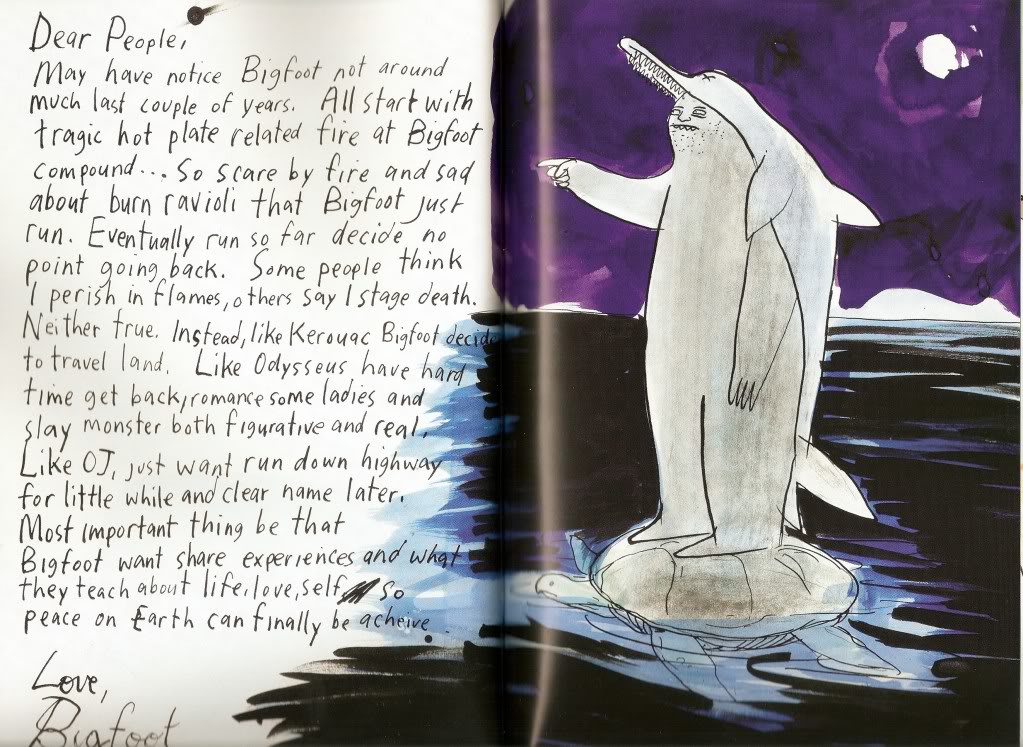 Dear People,
May have notice Bigfoot not around
much last couple of years. All start with
tragic hot plate related fire at Bigfoot
compound... So scare by fire and sad
about burn ravioli that Bigfoot just
run. Eventually run so far decide no
point going back. Some people think
I perish in flames, others say I stage death.
Neither true. Instead, like Kerouac Bigfoot decide
to travel land. Like Odysseus have hard
time get back, romance some ladies and
slay monster both figurative and real.
Like OJ, just want run down highway
for little while and clear name later.
Most important thing be that
Bigfoot want share experiences and what
they teach about life, love, self so
peace on Earth can finally be acheive.
Love,
Bigfoot